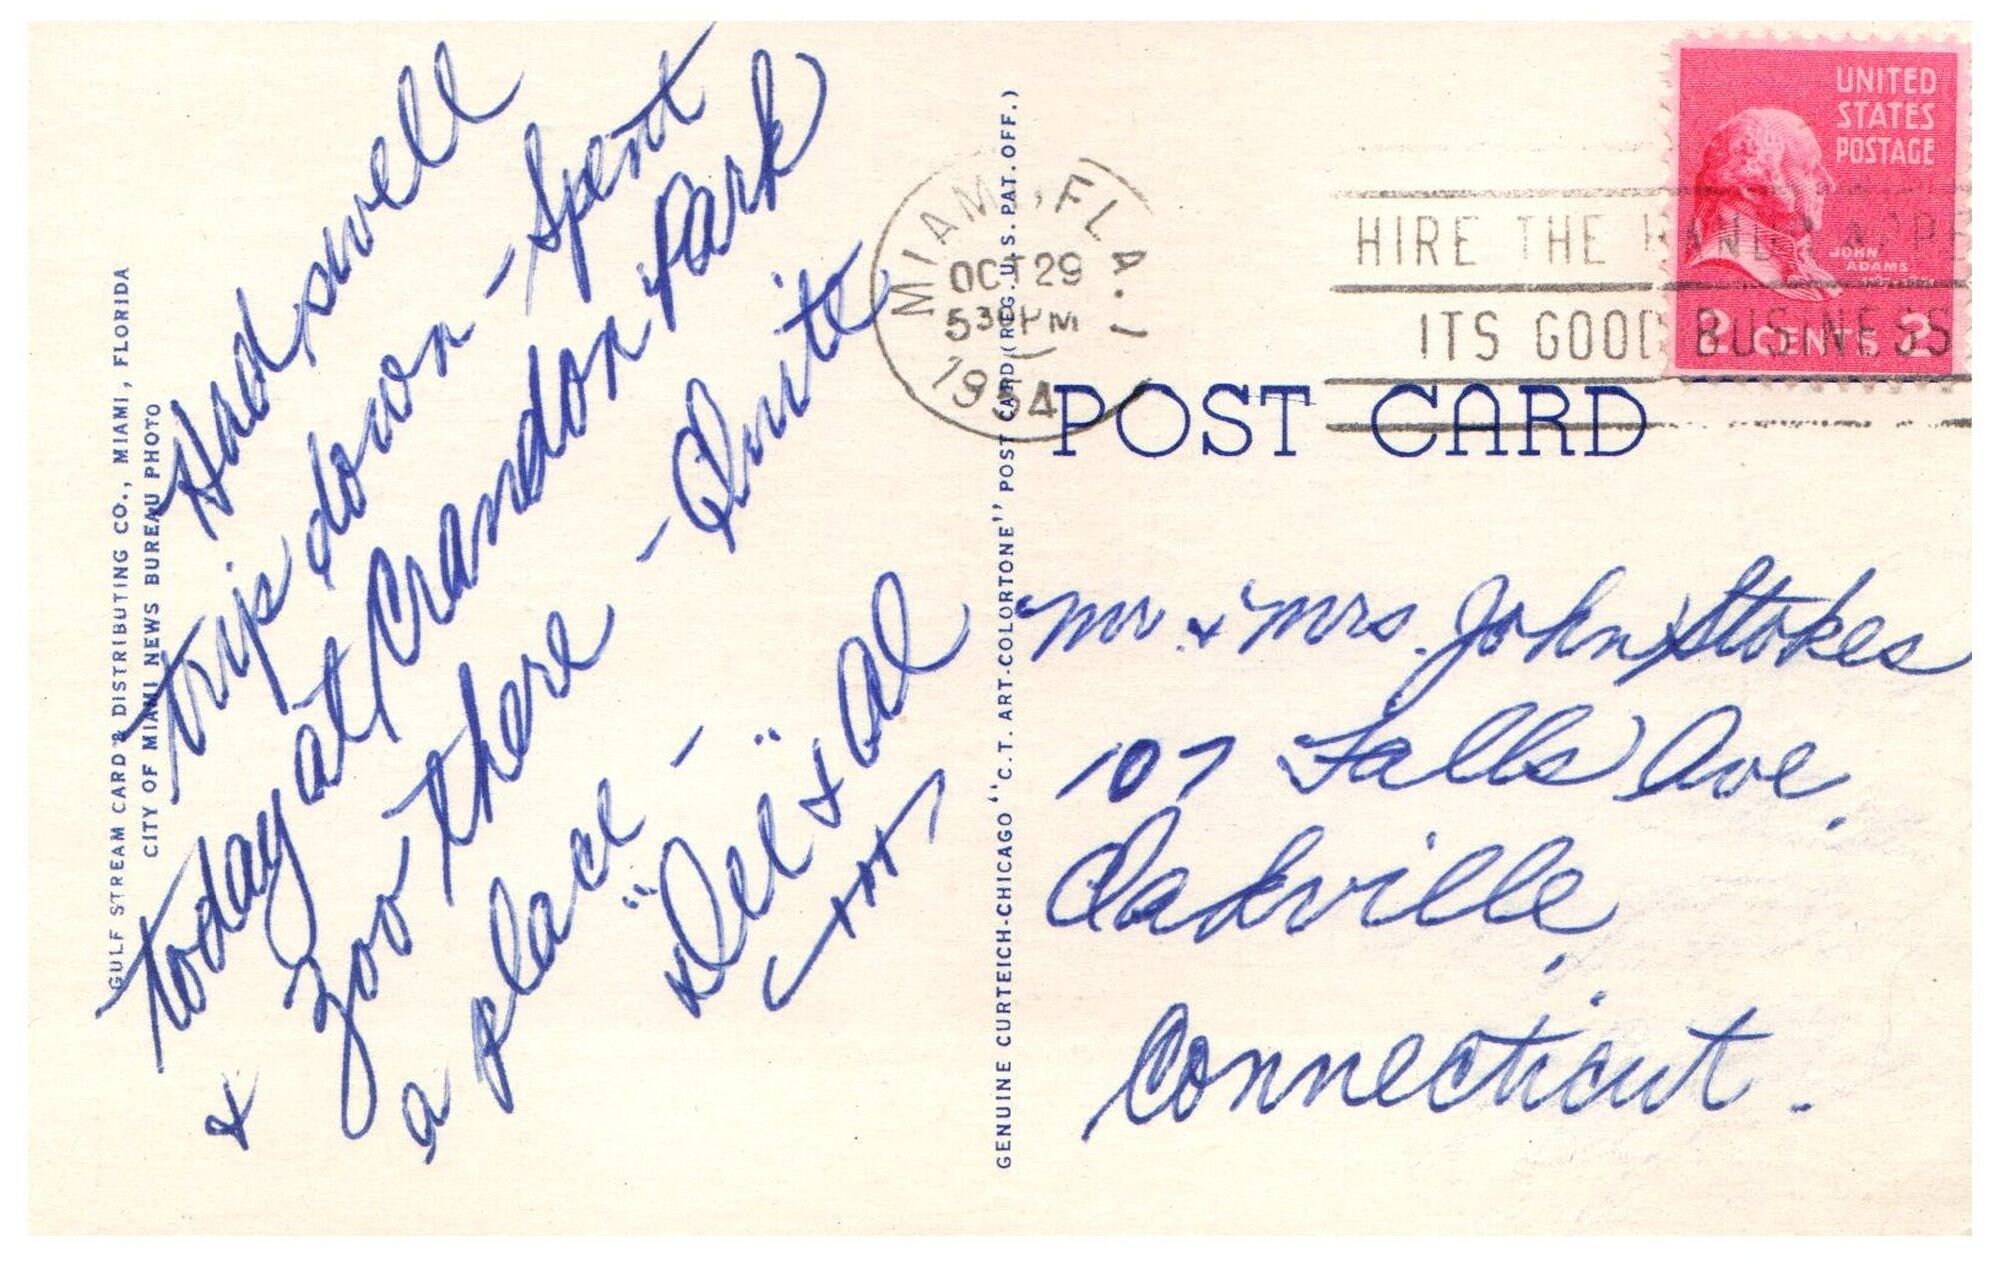 Had swell
trip down - Spent
today at Crandon Park
& zoo there - Quite
a place -
"Del" & Al
GULF STREAM CARD & DISTRIBUTING CO., MIAMI, FLORIDA
CITY OF MIAMI NEWS BUREAU PHOTO
GENUINE CURTEICH-CHICAGO "C.T. ART-COLORTONE" POST CARD (REG. U.S. PAT. OFF.)
MIAMI, FLA. 1
OCT 29
5 30 PM
1954
HIRE THE HANDICAPPE
ITS GOOD BUSINESS
UNITED
STATES
POSTAGE
JOHN
ADAMS
2 CENTS 2
POST CARD
Mr & Mrs. John Stokes
107 Falls Ave.
Oakville,
Connecticut.